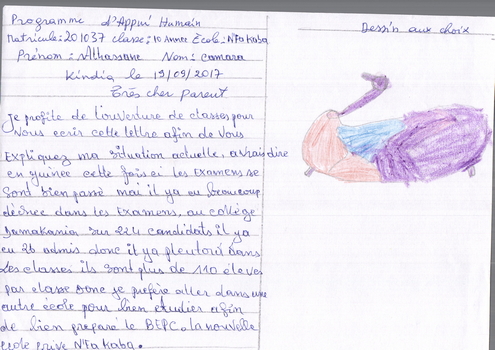 Programme d'Appui Humain
Matricule: 201037 classe: 10 Année École: N'Fa Kaba
Prénom: Alhassane Nom: camara
Kindia le 19/09/2017
Très cher parent
Dessin aux choix
Je profite de l'ouverture de classes pour
Vous ecrir cette lettre afin de Vous
Expliquez ma Situation actuelle, a vrai dire
en guinée cette fois ci les Examens se
Sont bien passé mai il ya eu beaucoup
déchec dans les Examens, au collège
Damakania sur 224 candidats il ya
eu 26 admis donc il ya pleutora dans
les classes ils Sont plus de 110 élèves
par classe Donc je prefère aller dans une
autre école pour bien étudier afin
de bien preparé le BEPC. la nouvelle
école prive N'Fa Kaba.